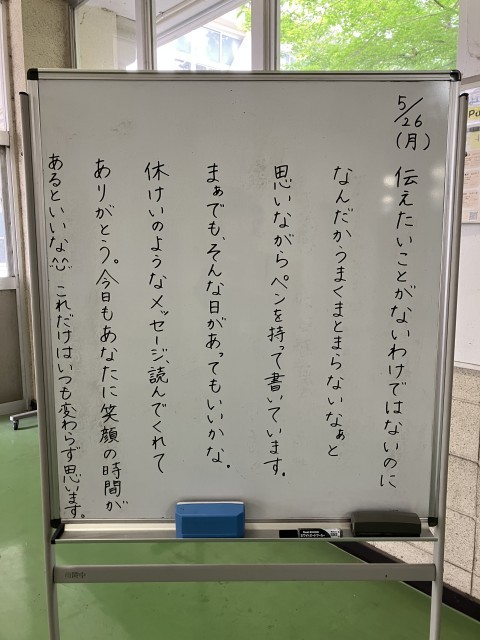 5/26(月)
伝えたいことがないわけではないのに
なんだかうまくまとまらないなぁと
思いながらペンを持って書いています。
まぁでも、そんな日があってもいいかな。
休けいのようなメッセージ、読んでくれて
ありがとう。今日もあなたに笑顔の時間が
あるといいな^^ これだけはいつも変わらず思います。